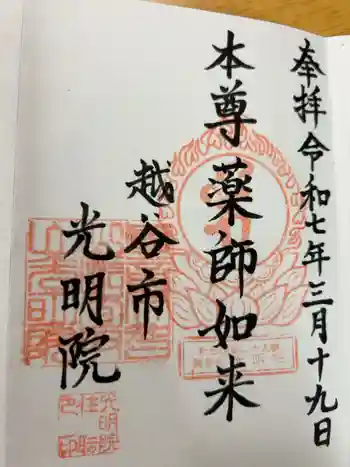 奉拝 令和七年三月十九日
本尊 薬師如来
越谷市
光明院